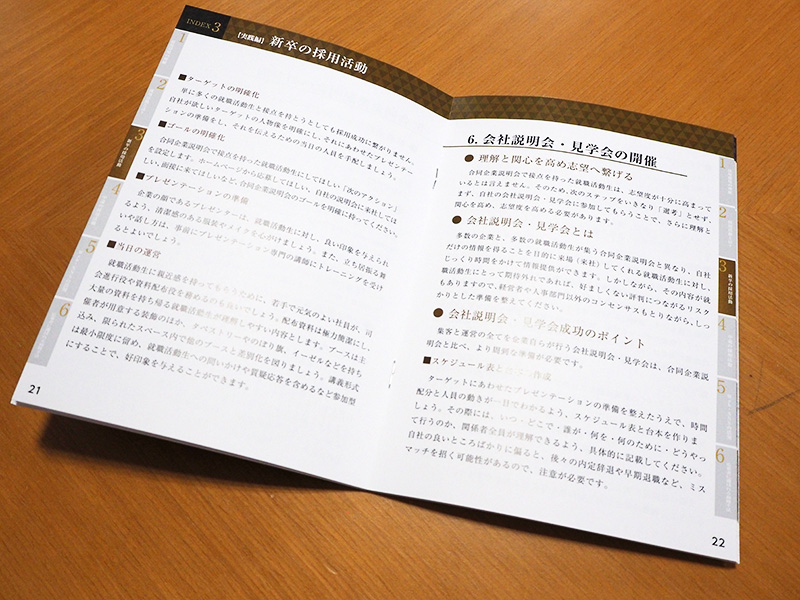 INDEX 3
【実践編】 新卒の採用活動
■ターゲットの明確化
単に多くの就職活動生と接点を持とうとしても採用成功に繋がりません。
自社が欲しいターゲットの人物像を明確にし、それにあわせたプレゼンテー
ションの準備をし、それを伝えるための当日の人員を手配しましょう。
■ゴールの明確化
合同企業説明会で接点を持った就職活動生にしてほしい「次のアクション」
を設定します。ホームページから応募してほしい、自社の説明会に来社してほ
しい、面接に来てほしいなど、合同企業説明会のゴールを明確に持ってください。
■プレゼンテーションの準備
企業の顔であるプレゼンターは、就職活動生に対し、良い印象を与えられ
るよう、清潔感のある服装やメイクを心がけましょう。また、立ち居振る舞
いや話し方は、事前にプレゼンテーション専門の講師にトレーニングを受け
るとよいでしょう。
■当日の運営
就職活動生に親近感を持ってもらうために、若手で元気のよい社員が、司
会進行役や資料配布役を務めるのも良いでしょう。配布資料は極力簡潔にし、
大量の資料を持ち帰る就職活動生が理解しやすい内容とします。ブースは主
催者が用意する装飾のほか、タペストリーやのぼり旗、イーゼルなどを持ち
込み、限られたスペース内で他のブースと差別化を図りましょう。講義形式
は最小限度に留め、就職活動生への問いかけや質疑応答を含めるなど参加型
にすることで、好印象を与えることができます。
21
1
2
3
新卒の採用活動
4
5
6
6. 会社説明会・見学会の開催
● 理解と関心を高め志望へ繋げる
合同企業説明会で接点を持った就職活動生は、志望度が十分に高まって
いるとは言えません。そのため、次のステップをいきなり「選考」とせず、
まず、自社の会社説明会・見学会に参加してもらうことで、さらに理解と
関心を高め、志望度を高める必要があります。
● 会社説明会・見学会とは
多数の企業と、多数の就職活動生が集う合同企業説明会と異なり、自社
だけの情報を得ることを目的に来場（来社）してくれる就職活動生に対し、
じっくり時間をかけて情報提供ができます。しかしながら、その内容が就
職活動生にとって期待外れであれば、好ましくない評判につながるリスク
もありますので、経営者や人事部門以外のコンセンサスもとりながら、しっ
かりとした準備を整えてください。
● 会社説明会・見学会成功のポイント
集客と運営の全てを企業自らが行う会社説明会・見学会は、合同企業説
明会と比べ、より周到な準備が必要です。
■スケジュール表と台本の作成
ターゲットにあわせたプレゼンテーションの準備を整えたうえで、時間
配分と人員の動きが一目でわかるよう、スケジュール表と台本を作りま
しょう。その際には、いつ・どこで・誰が・何を・何のために・どうやっ
て行うのか、関係者全員が理解できるよう、具体的に記載してください。
自社の良いところばかりに偏ると、後々の内定辞退や早期退職など、ミス
マッチを招く可能性があるので、注意が必要です。
22
1
2
3
新卒の採用活動
4
5
6